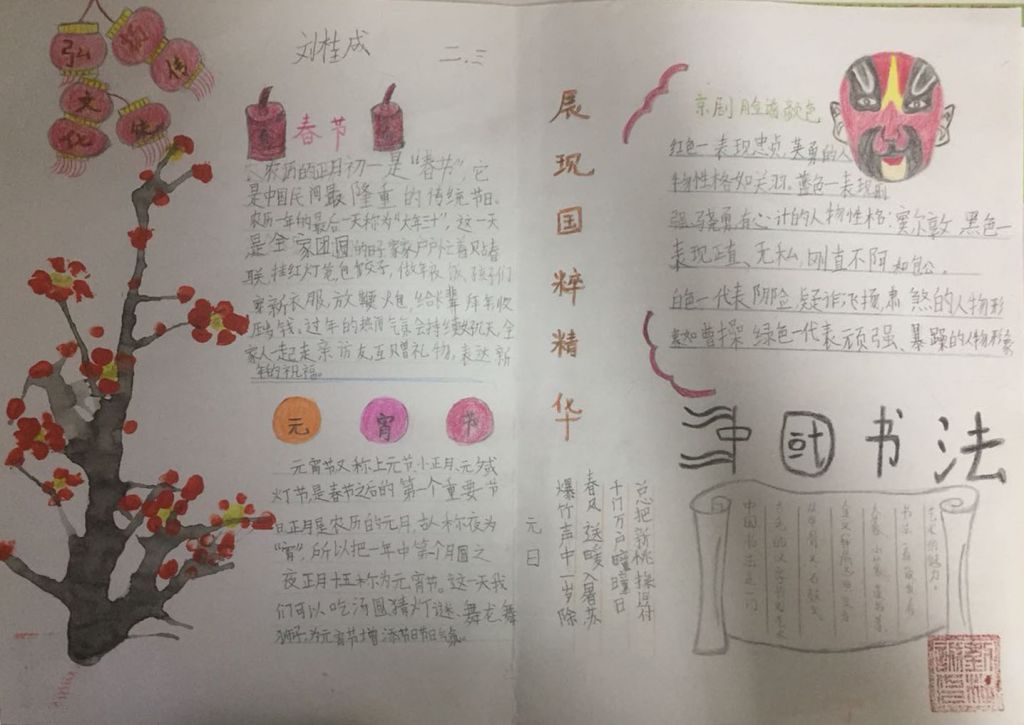 弘
扬
传
文
统
化
刘桂成
二.三
春节
农历的正月初一是“春节”,它
是中国民间最隆重的传统节日.
农历一年的最后一天称为“大年三十”,这一天
是全家团圆的时家家户户忙着贴春
联,挂红灯笼包饺子,做年夜饭,孩子们
穿新衣服,放鞭炮,给长辈拜年收
压岁钱.过年的热闹气氛会持续数玩天,全
家人一起走亲访友,互赠礼物,表达新
年的祝福。
元宵节
元宵节又称上元节、小正月、元夕或
灯节,是春节之后的第一个重要节
日,正月是农历的元月,古人称夜为
“宵”,所以把一年中第个月圆之
夜正月十五称为元宵节。这一天我
们可以吃汤圆猜灯谜、舞龙、舞
狮子,为元宵节增添节日气氛。
展现国粹精华
元日
爆竹声中一岁除
春风送暖入屠苏
千门万户曈曈日
总把新桃换旧符
京剧脸谱颜色
红色一表现忠贞,英勇的人
物性格如关羽。蓝色一表现刚
强骁勇有心计的人物性格:窦尔敦,黑色一
表现正直、无私,刚直不阿如包公。
白色一代表阴险,疑诈飞扬,肃煞的人物形
象如曹操,绿色一代表顽强、暴躁的人物形象
中国书法
中国书法是一门
古老的汉字书写艺术